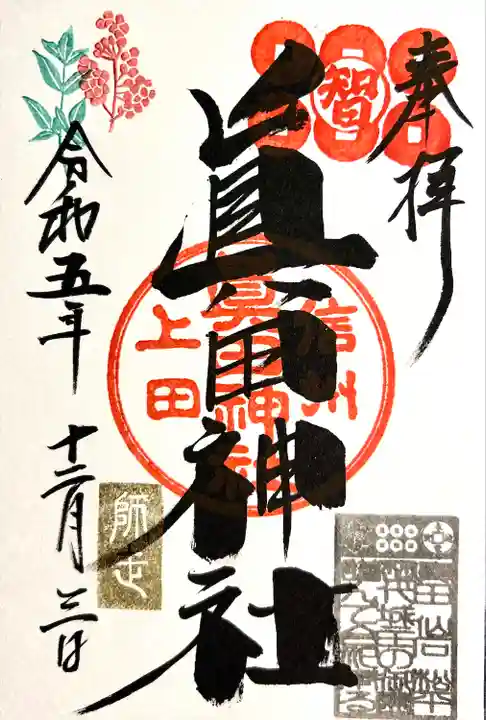 奉拝
智
眞田神社
信州
眞田神社
上田
令和五年
十二月三日
師走